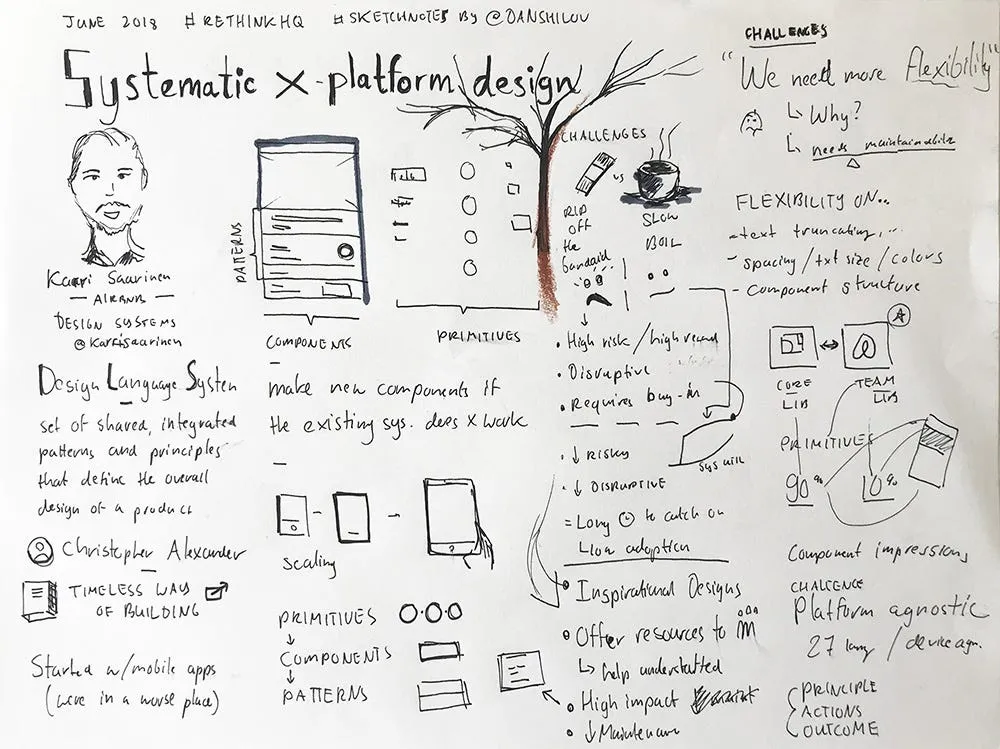 JUNE 2018 #RETHINKHQ #SKETCHNOTES BY @DANSHILOV
Systematic x-platform design
Karri Saarinen
— AIRBNB —
DESIGN SYSTEMS
@karrisaarinen
Design Language System
set of shared, integrated
patterns and principles
that define the overall
design of a product
Christopher Alexander
TIMELESS WAY
OF BUILDING
Started w/mobile apps
(were in a worse place)
PATTERNS
COMPONENTS
PRIMITIVES
make new components if
the existing sys. does x work
scaling
PRIMITIVES
↓
COMPONENTS
↓
PATTERNS
CHALLENGES
vs
RIP
OFF
the
bandaid
SLOW
BOIL
• High risk / high reward
• Disruptive
• Requires buy-in
• ↓ RISKY
• ↓ DISRUPTIVE
= Long to catch on
Low adoption
sys util
• Inspirational Designs
• Offer resources to
↳ help understaffed
• High impact
• ↓ Maintenance
CHALLENGES
"We need more Flexibility"
↳ Why?
↳ needs maintainable
FLEXIBILITY ON..
- text truncating,..
- spacing / txt size / colors
- component structure
A
CORE
LIB
TEAM
LIB
PRIMITIVES
90% 10%
Component impressions
CHALLENGE
Platform agnostic
27 lang / device agn.
PRINCIPLE
ACTIONS
OUTCOME